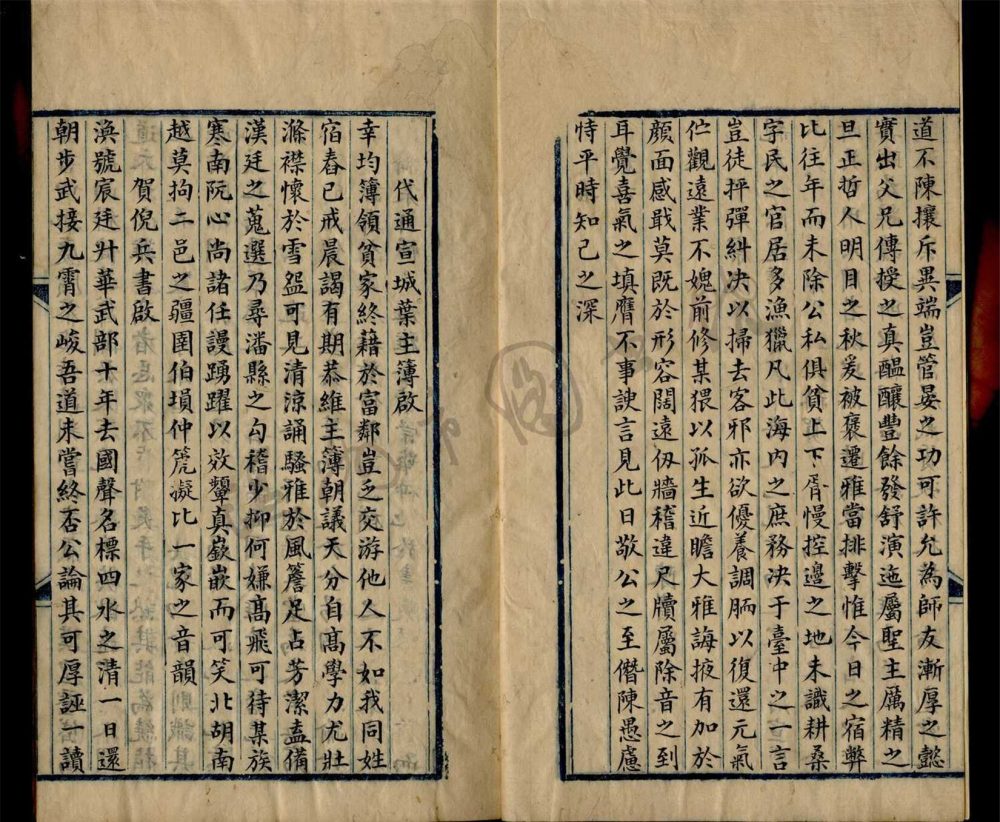 道不陳攘斥異端豈管晏之功可許允為師友漸厚之懿
實出父兄傳授之真醞釀豐餘發舒演迤屬聖主厲精之
旦正哲人明目之秋爰被褒遷雅當排擊惟今日之宿弊
比往年而未除公私俱貧上下胥慢控邊之地未識耕桑
字民之官居多漁獵凡此海內之庶務決于臺中之一言
豈徒抨彈糾決以掃去客邪亦欲優養調腼以復還元氣
伫觀遠業不媿前修某猥以孤生近瞻大雅誨掖有加於
顏面感戢莫既於形容闊遠仭牆稽違尺牘屬除音之到
耳覺喜氣之填膺不事諛言見此日敬公之至僭陳愚慮
恃平時知己之深
代通宣城葉主薄啟
幸均簿領貧家終藉於富鄰豈乏交游他人不如我同姓
宿舂已戒晨謁有期恭維主簿朝議天分自高學力尤壯
滌襟懷於雪盌可見清涼誦騷雅於風簷足占芳潔盍備
漢廷之蒐選乃尋潘縣之勾稽少抑何嫌高飛可待某族
寒南阮心尚諸任謾踴躍以效顰真嶔嵌而可笑北胡南
越莫拘二邑之疆圉伯塤仲箎擬比一家之音韻
賀倪兵書啟
渙號宸廷升華武部十年去國聲名標四水之清一日還
朝步武接九霄之峻吾道未嘗終否公論其可厚誣
讀